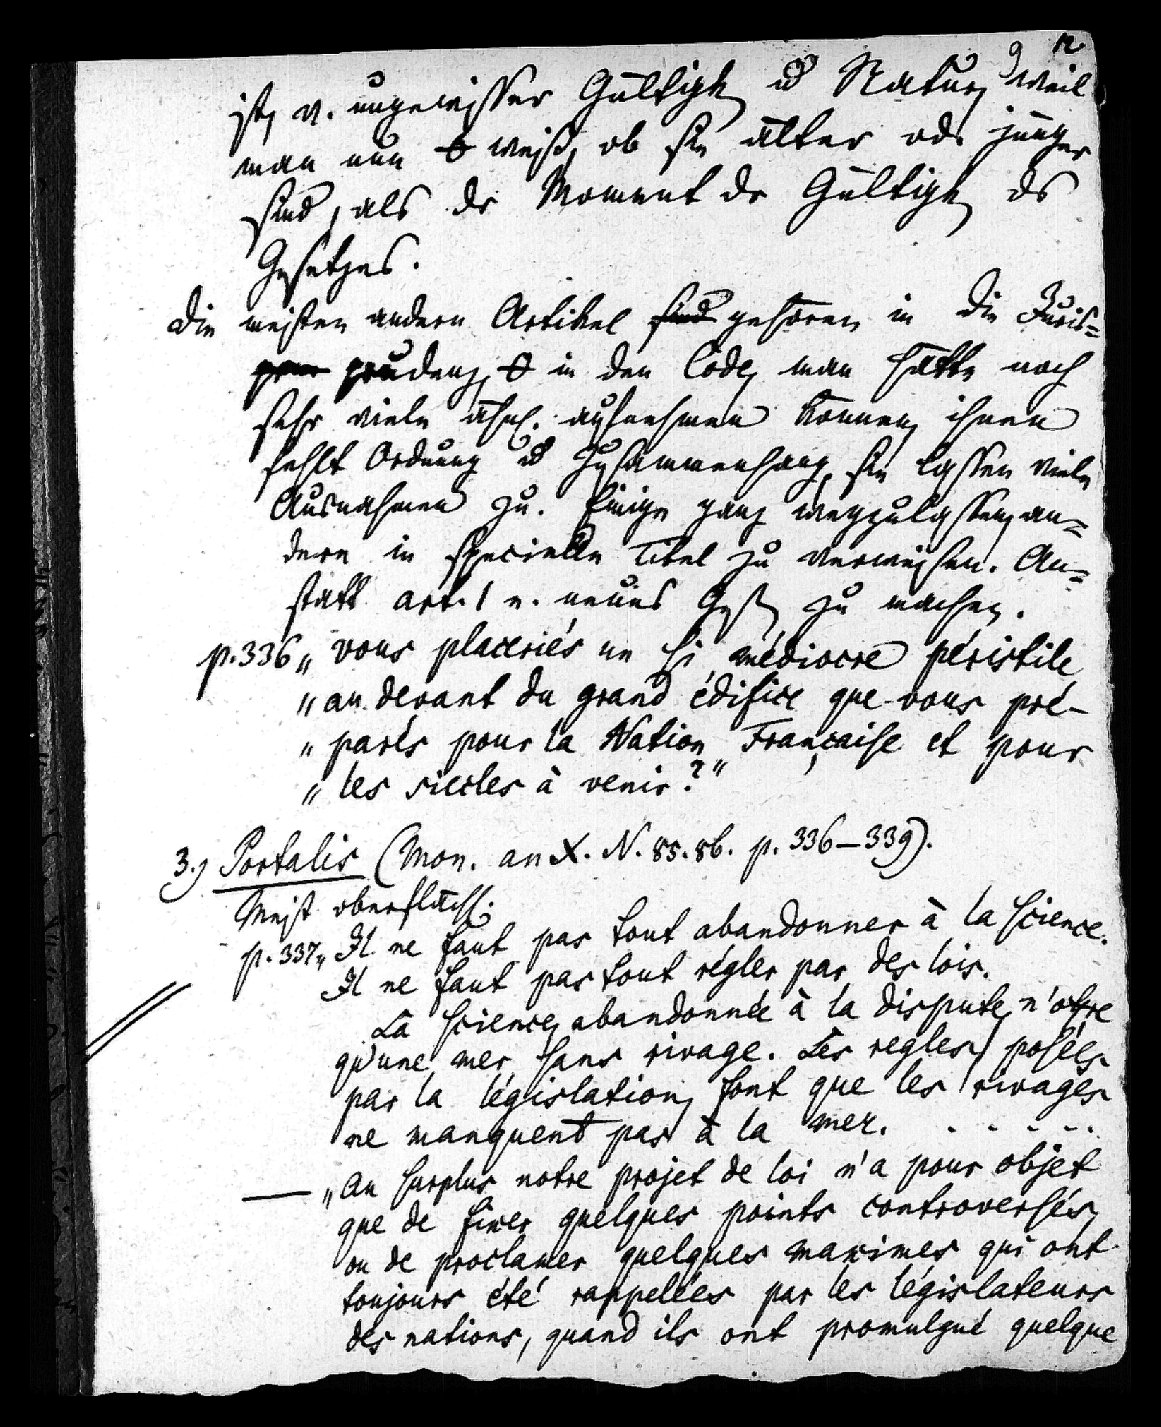 9 12.
ist, v. ungewisser Gültigk. u Natur, weil
man nun weiß, ob sie älter od. jünger
sind, als dr Moment dr Gültigk. ds
Gesetzes.
Die meisten andern Artikel sind gehören in die Juris=
prudenz, in den Code, man hätte noch
sehr viele ähnl. aufnehmen können, ihnen
fehlt Ordnung u Zusammenhang, sie lassen viele
Ausnahmen zu. Einige ganz wegzulassen, an=
dere in specielle Titel zu verweisen. An=
statt art. 1 e. neues Gesetz zu machen.
p. 336 „ vous placeriés un si médiocre péristile
„ au devant du grand édifice que vous pré-
„ parés pour la Nation Française et pour
„ les siecles à venir?"
3.) Portalis (Mon. an X. N. 85. 86. p. 336–339).
Meist oberflächl.
p. 337. „ Il ne faut pas tout abandonner à la science.
Il ne faut pas tout régler par des lois.
La science, abandonnée à la dispute, n'ofre
qu'une mer sans rivage. Les regles posées
par la législation, font que les rivages
ne manquent pas à la mer. . . . . . .
— „ Au surplus notre projet de loi n'a pour objet
que de fixer quelques points controversés,
ou de proclamer quelques maximes qui ont
toujours été rappellées par les législateurs
des nations, quand ils ont promulgué quelque